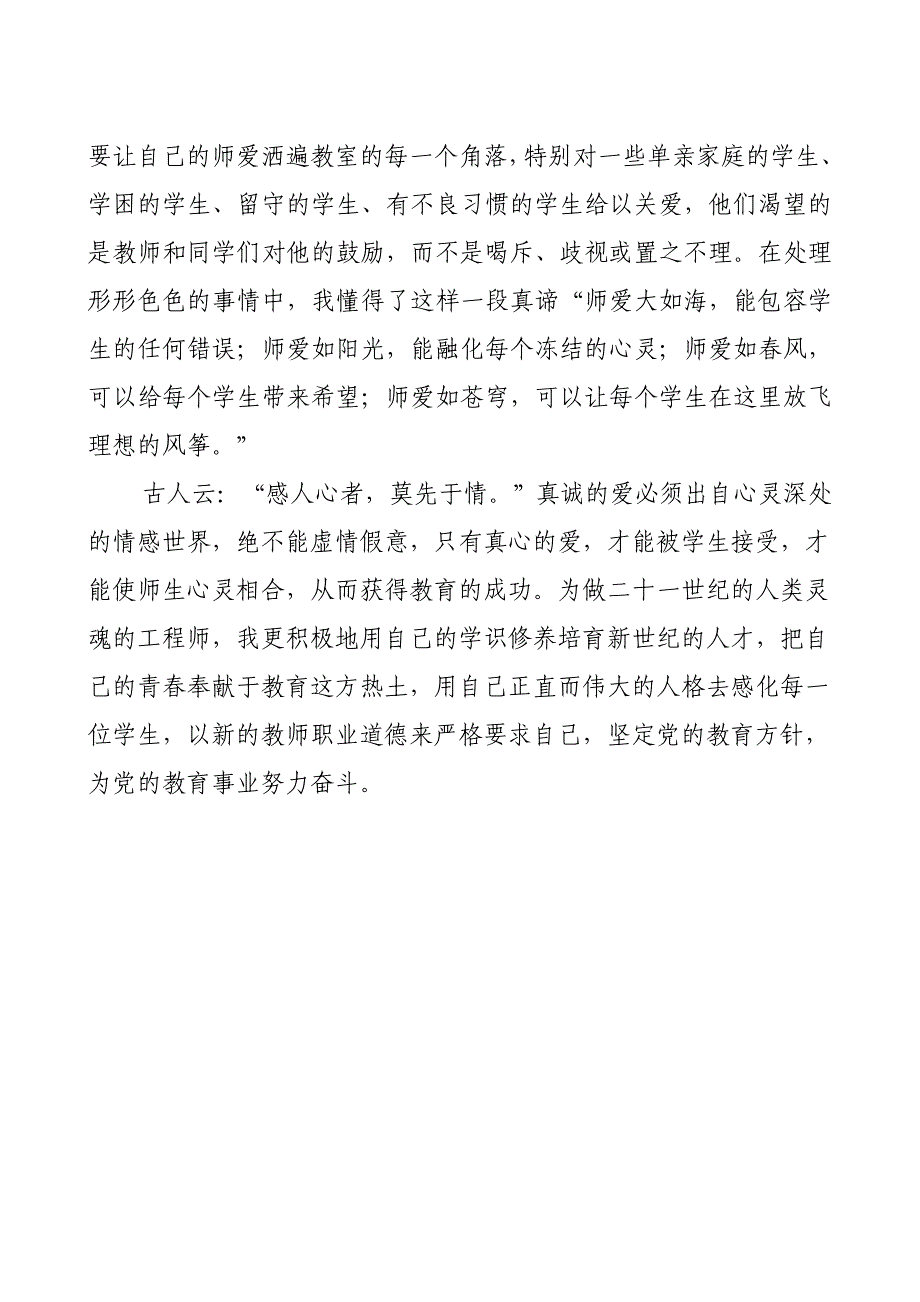 要让自己的师爱洒遍教室的每一个角落，特别对一些单亲家庭的学生、
学困的学生、留守的学生、有不良习惯的学生给以关爱，他们渴望的
是教师和同学们对他的鼓励，而不是喝斥、歧视或置之不理。在处理
形形色色的事情中，我懂得了这样一段真谛“师爱大如海，能包容学
生的任何错误；师爱如阳光，能融化每个冻结的心灵；师爱如春风，
可以给每个学生带来希望；师爱如苍穹，可以让每个学生在这里放飞
理想的风筝。”
古人云：“感人心者，莫先于情。”真诚的爱必须出自心灵深处
的情感世界，绝不能虚情假意，只有真心的爱，才能被学生接受，才
能使师生心灵相合，从而获得教育的成功。为做二十一世纪的人类灵
魂的工程师，我更积极地用自己的学识修养培育新世纪的人才，把自
己的青春奉献于教育这方热土，用自己正直而伟大的人格去感化每一
位学生，以新的教师职业道德来严格要求自己，坚定党的教育方针，
为党的教育事业努力奋斗。